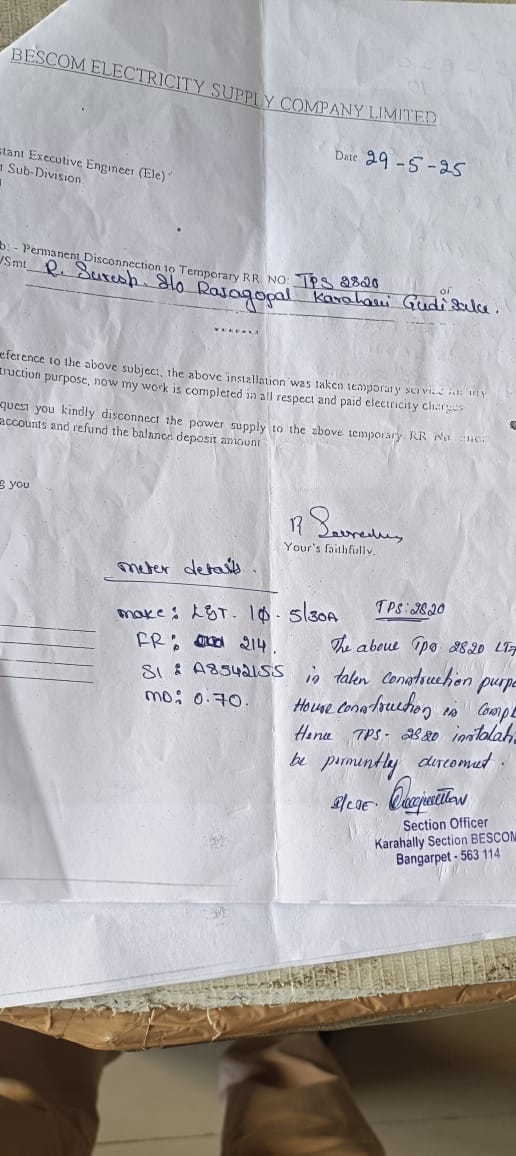 BESCOM ELECTRICITY SUPPLY COMPANY LIMITED
Date 29-5-25
tant Executive Engineer (Ele)
Sub-Division
b: - Permanent Disconnection to Temporary RR. NO: TPS 2820 of
/Smt R. Suresh. S/o Rajagopal
eference to the above subject, the above installation was taken temporary service
truction purpose, now my work is completed in all respect and paid electricity charges
quest you kindly disconnect the power supply to the above temporary RR No
accounts and refund the balance deposit amount
s you
Your's faithfully.
meter details.
make: L&T. 1φ. 5/30A
FR: 214.
Sl: A8542155
MD: 0.70.
TPS: 2820
The above TPS 2820
is taken constrouchion purp
House constrouchon is Compl
TPS-2820
be permently
Section Officer
Karahally Section BESCOM
Bangarpet - 563 114